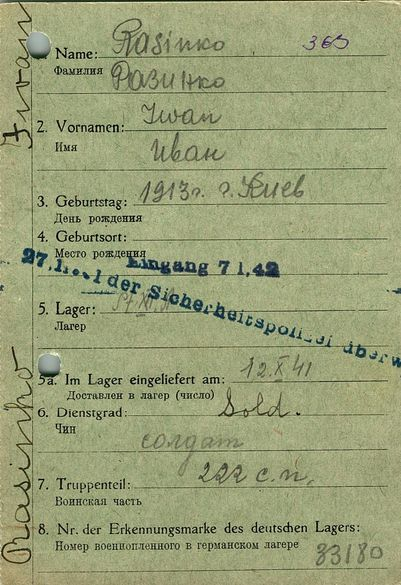 Iwan
Rasinko
1. Name: Rasinko 365
Фамилия Разинко
2. Vornamen: Iwan
Имя Иван
3. Geburtstag: 1913г. г. Киев
День рождения
4. Geburtsort:
Место рождения
Eingang 7 1. 42
der Sicherheitspolizei überw
5. Lager:
Лагер
5a. Im Lager eingeliefert am: 12.X 41
Доставлен в лагер (число)
6. Dienstgrad: Sold.
Чин солдат
7. Truppenteil: 222 с.п.
Воинская часть
8. Nr. der Erkennungsmarke des deutschen Lagers:
Номер военнопленного в германском лагере 33180